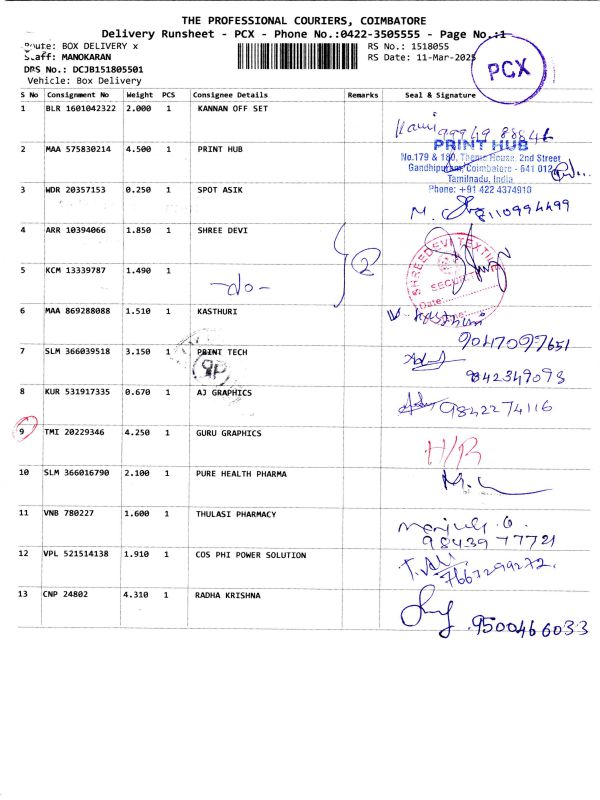 THE PROFESSIONAL COURIERS, COIMBATORE
Delivery Runsheet - PCX - Phone No.:0422-3505555 - Page No.:1
Route: BOX DELIVERY x
RS No.: 1518055
Staff: MANOKARAN
RS Date: 11-Mar-2025
PCX
DRS No.: DCJB151805501
Vehicle: Box Delivery
S No Consignment No Weight PCS Consignee Details Remarks Seal & Signature
1 BLR 1601042322 2.000 1 KANNAN OFF SET
99949 88846
2 MAA 575830214 4.500 1 PRINT HUB
PRINT HUB
No.179 & 180, Thome House, 2nd Street
Gandhipuram, Coimbatore - 641 012
Tamilnadu, India
Phone: +91 422 4374910
3 WDR 20357153 0.250 1 SPOT ASIK
4 ARR 10394066 1.850 1 SHREE DEVI
2
SHREEDEVI TEXTILE
SECURITY
Date:
5 KCM 13339787 1.490 1
-do-
6 MAA 869288088 1.510 1 KASTHURI
9047097651
7 SLM 366039518 3.150 1 PRINT TECH
9842349093
8 KUR 531917335 0.670 1 AJ GRAPHICS
9842274116
9 TMI 20229346 4.250 1 GURU GRAPHICS
H/R
10 SLM 366016790 2.100 1 PURE HEALTH PHARMA
11 VNB 780227 1.600 1 THULASI PHARMACY
98439 77721
12 VPL 521514138 1.910 1 COS PHI POWER SOLUTION
7667299272.
13 CNP 24802 4.310 1 RADHA KRISHNA
9500466033